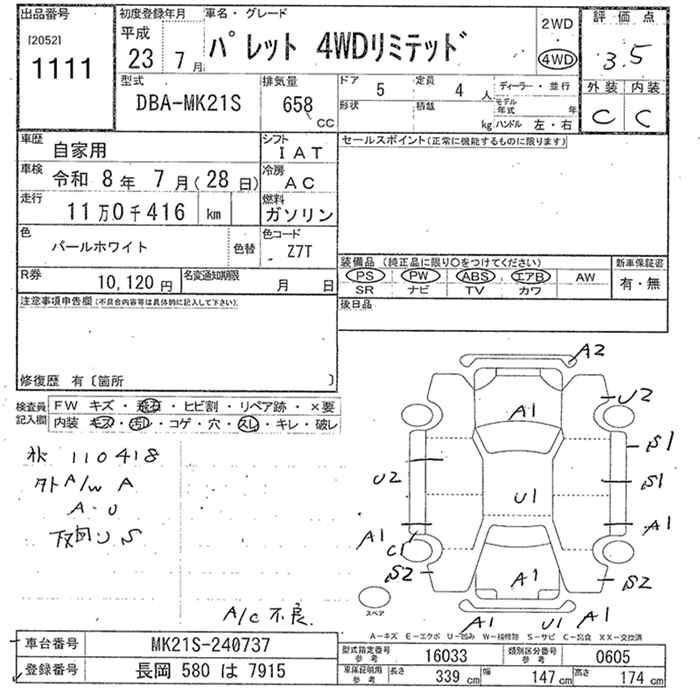 出品番号
[2052]
1111
初度登録年月
平成
23 7月
車名・グレード
パレット 4WDリミテッド
2WD
4WD
評価点
3.5
外装 内装
C C
型式
DBA-MK21S
排気量
658 CC
ドア 5
定員 4人
形状
積載 kg
ディーラー・並行
モデル年式 年
ハンドル 左・右
車歴
自家用
シフト
IAT
セールスポイント(正常に機能するものに限ります)
車検
令和 8年 7月(28日)
冷房
AC
走行
11万0千416 km
燃料
ガソリン
色
パールホワイト
色替
色コード
Z7T
装備品 (純正品に限り○をつけてください)
PS PW ABS エアB AW
SR ナビ TV カワ
新車保証書
有・無
R券
10,120円
名変通知期限
月 日
後日品
注意事項申告欄(不具合内容等は具体的に記入して下さい)
修復歴 有〔箇所 〕
検査員記入欄
FW キズ・飛石・ヒビ割・リペア跡・×要
内装 キズ・汚レ・コゲ・穴・スレ・キレ・破レ
110418
A/W A
A・U
S
A/C不良
A2
U2
A1
S1
U2
S1
U1
A1
A1
C1
S2
A1
S2
スペア
A1
U1
A1
A-キズ E-エクボ U-凹み W-補修跡 S-サビ C-腐食 XX-交換済
車台番号
MK21S-240737
登録番号
長岡 580 は 7915
型式指定番号
参考
16033
類別区分番号
参考
0605
車庫証明用
参考
長さ 339 cm
幅 147 cm
高さ 174 cm